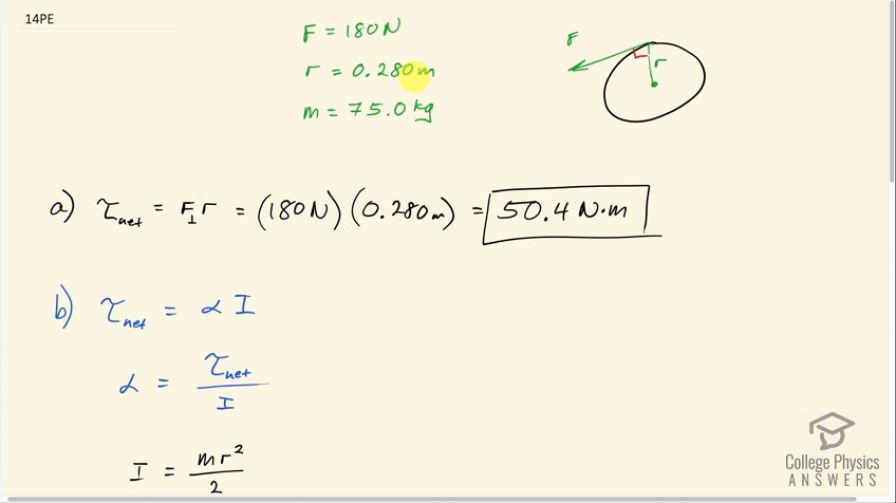 14PE
F = 180N
r = 0.280m
m = 75.0 kg
F
r
a) τnet = F⊥r = (180N)(0.280m) = 50.4 N·m
b) τnet = α I
α = τnet / I
I = mr² / 2
College Physics
ANSWERS